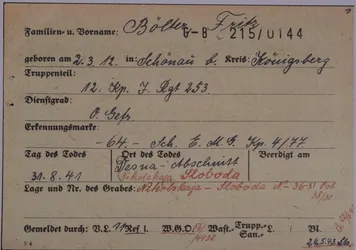 Familien- u. Vorname: Bölter Fritz
G-B 215/0144
geboren am 2.3.12 in: Schönau b. Kreis: Königsberg
Truppenteil:
12. Kp. J. Rgt 253
Dienstgrad:
O. Gefr
Erkennungsmarke:
-64- Sch. E. M. G. Kp. 4/77
Tag des Todes Ort des Todes Beerdigt am
Desna-Abschnitt
31.8.41 Nikolskaja Sloboda
Lage und Nr. des Grabes: Nikolskaja-Sloboda N=
Gemeldet durch: V.L. Ref. W.G.O. Wast.- Trupp.- L. Bl.
San.-
V 4 24.5.43